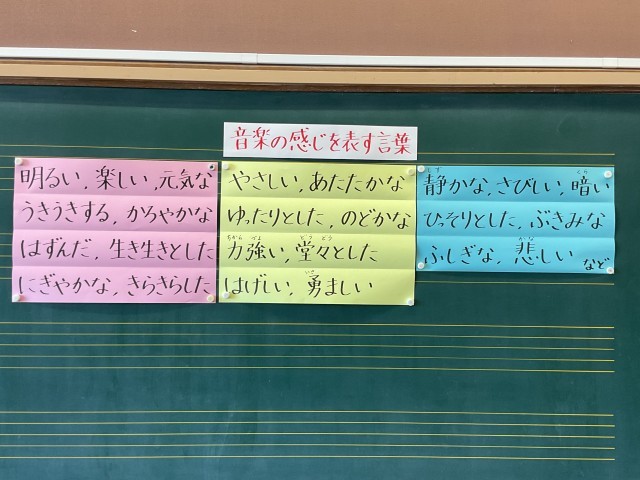 音楽の感じを表す言葉
明るい，楽しい，元気な
うきうきする，かろやかな
はずんだ，生き生きとした
にぎやかな，きらきらした
やさしい，あたたかな
ゆったりとした，のどかな
力強い，堂々とした
はげしい，勇ましい
静かな，さびしい，暗い
ひっそりとした，ぶきみな
ふしぎな，悲しい など